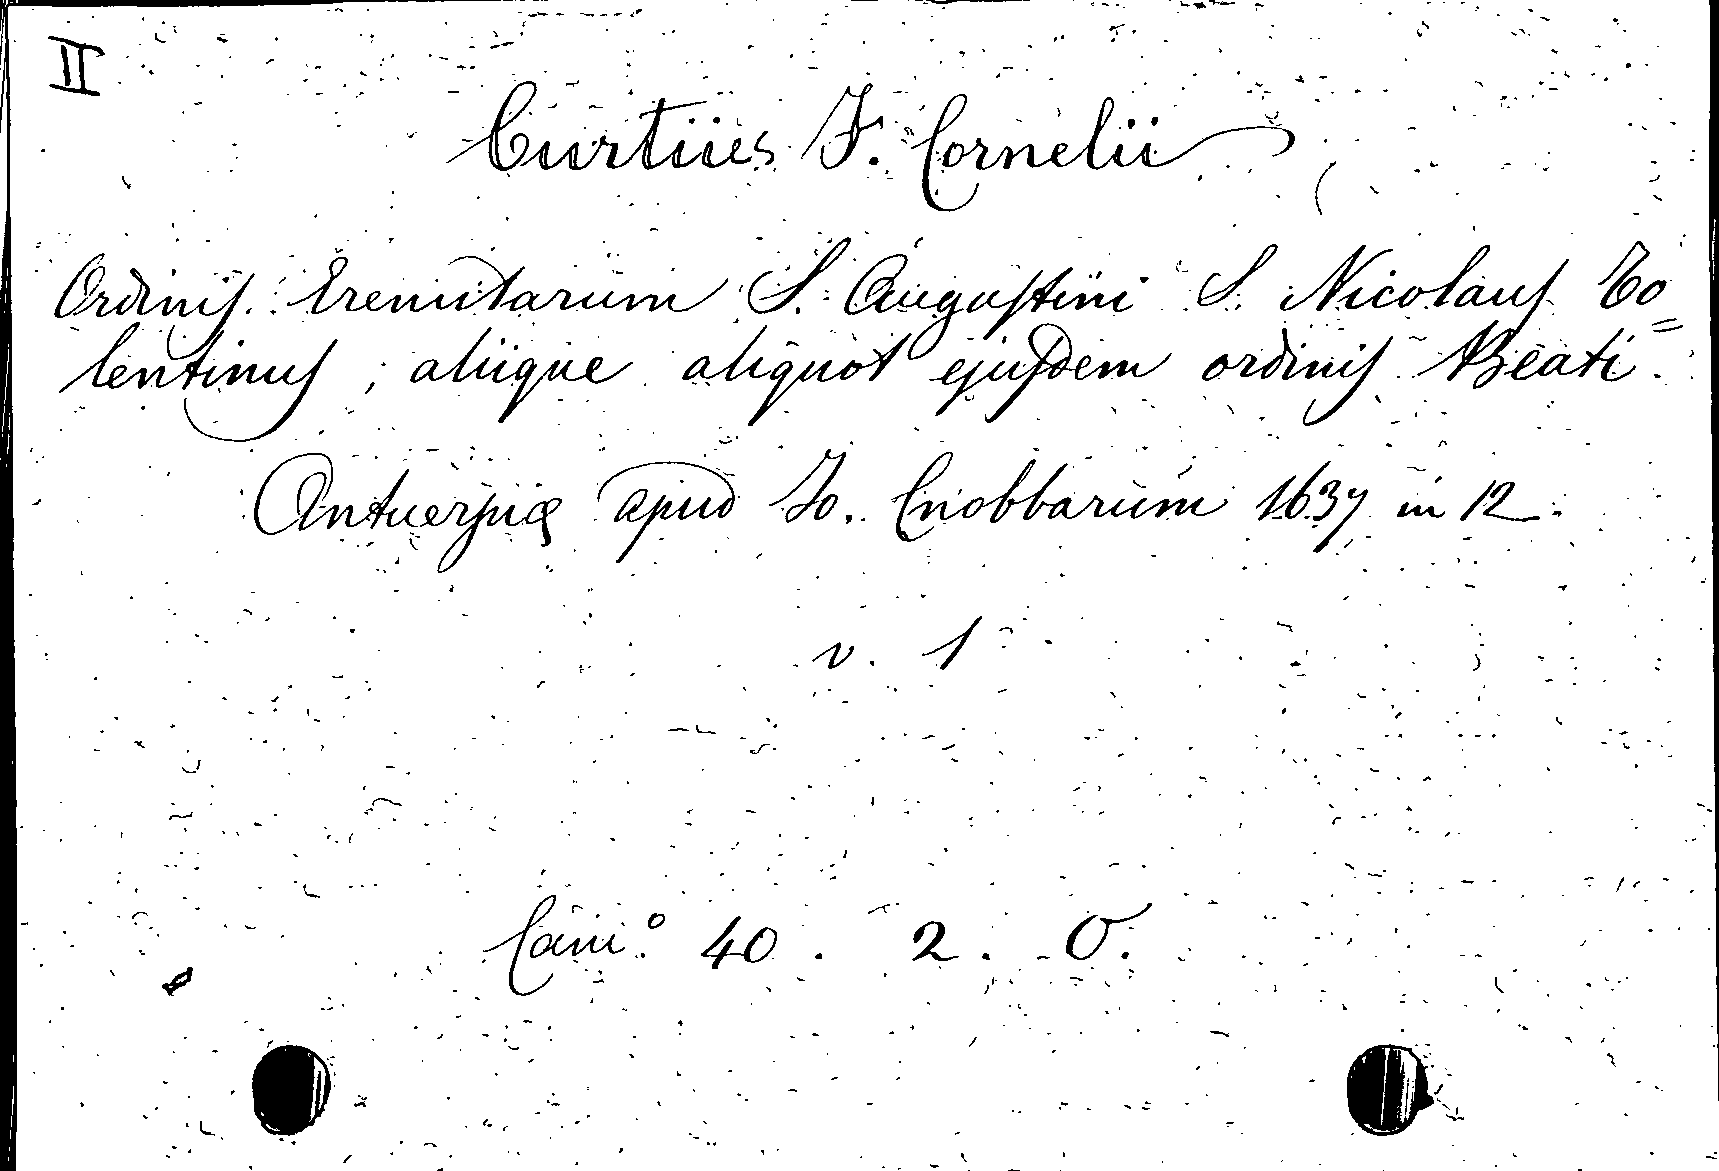 II
Curtius F. Cornelii
Ordinis Eremitarum S. Augustini S. Nicolaus To=
lentinus, aliique aliquot ejusdem ordinis Beati.
Antuerpiæ apud Jo. Cnobbarum 1637 in 12.
v. 1
Cam.° 40. 2. O.